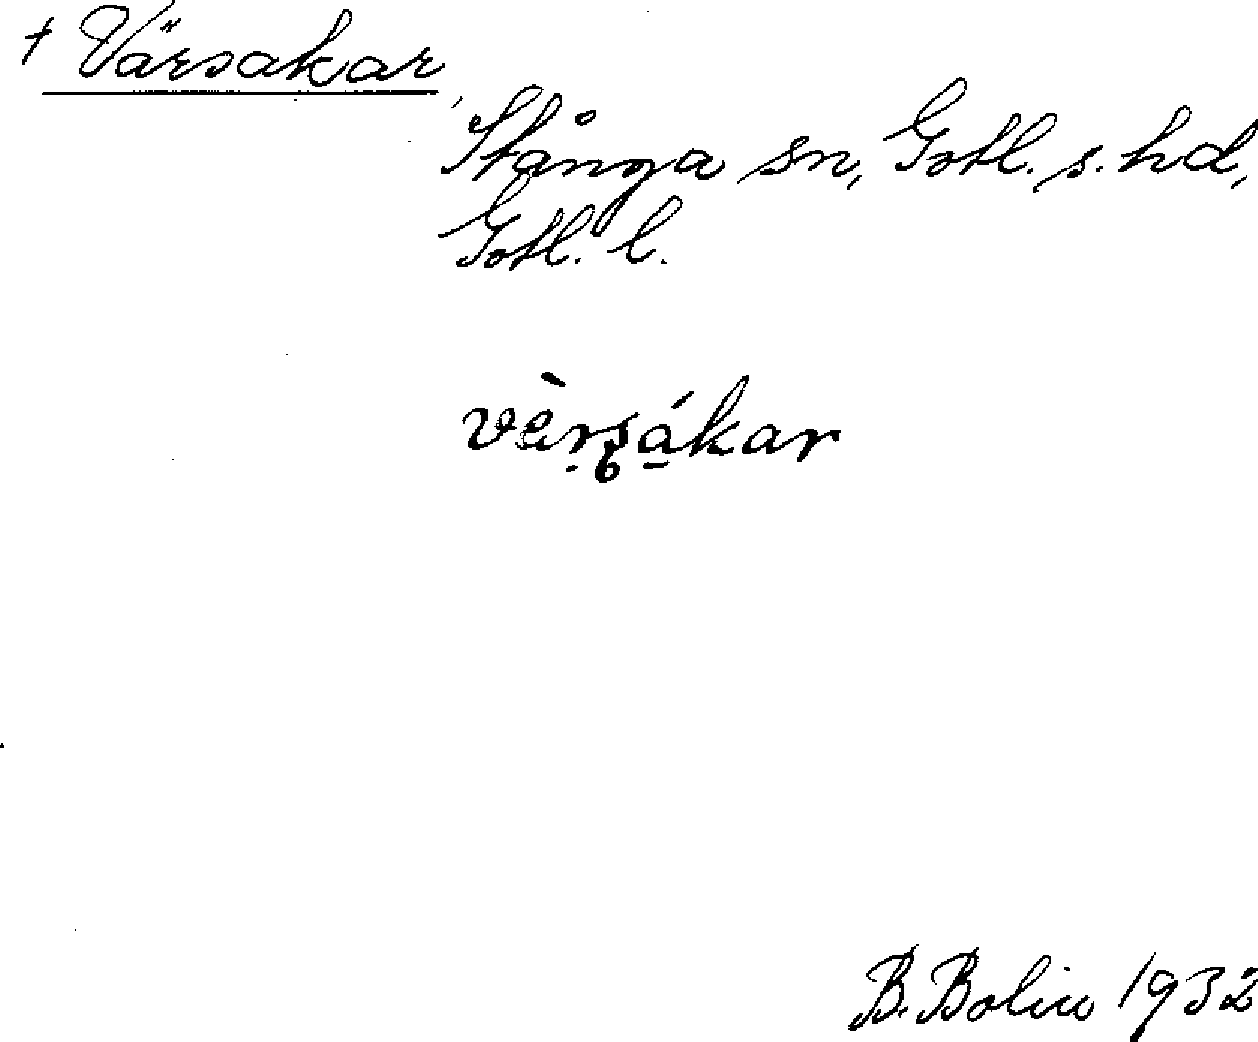 † Värsakar
Stånga sn, Gotl. s. hd,
Gotl. l.
vèrsákar
B. Bolin 1932